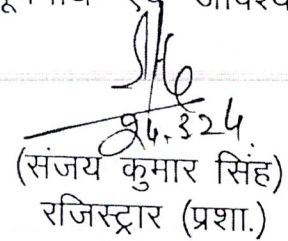 एवं
24.3.24
(संजय कुमार सिंह)
रजिस्ट्रार (प्रशा.)